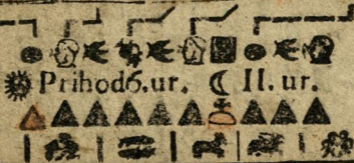 Prihod6.ur. ☾ II. ur.